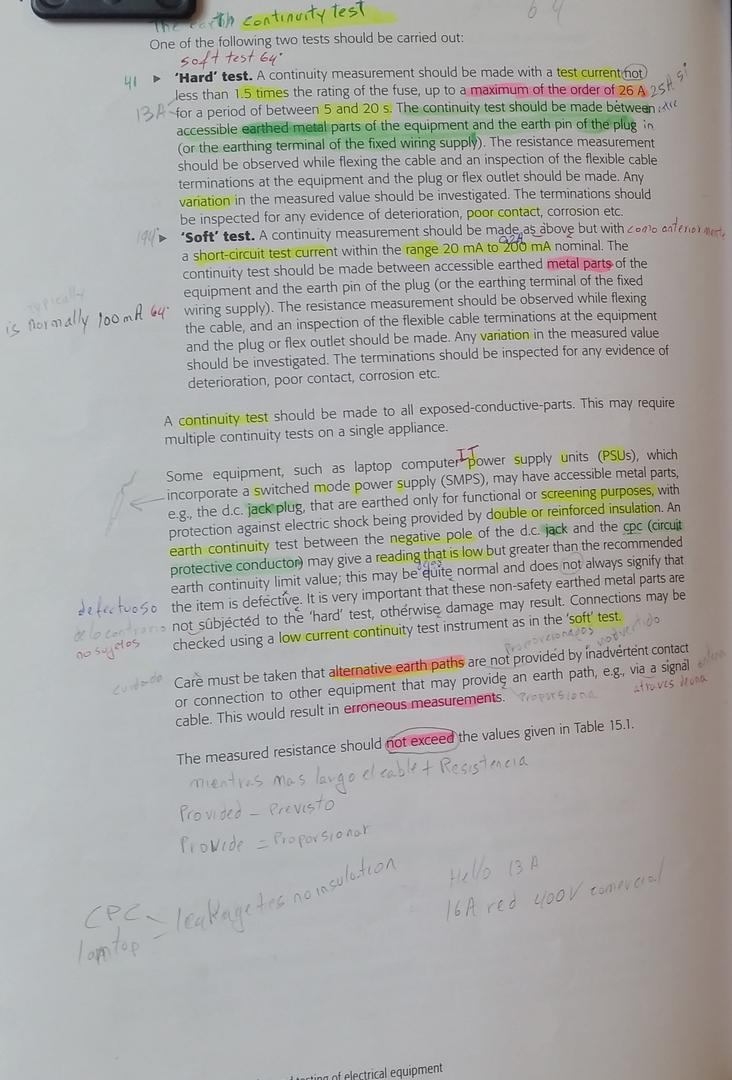 The earth continuity test
64
One of the following two tests should be carried out:
soft test 64
41 ▶ 'Hard' test. A continuity measurement should be made with a test current not
less than 1.5 times the rating of the fuse, up to a maximum of the order of 26 A 25A si
13A for a period of between 5 and 20 s. The continuity test should be made between entre
accessible earthed metal parts of the equipment and the earth pin of the plug in
(or the earthing terminal of the fixed wiring supply). The resistance measurement
should be observed while flexing the cable and an inspection of the flexible cable
terminations at the equipment and the plug or flex outlet should be made. Any
variation in the measured value should be investigated. The terminations should
be inspected for any evidence of deterioration, poor contact, corrosion etc.
▶ 'Soft' test. A continuity measurement should be made as above but with como anteriormente
a short-circuit test current within the range 20 mA to 200 mA nominal. The
continuity test should be made between accessible earthed metal parts of the
equipment and the earth pin of the plug (or the earthing terminal of the fixed
typically
is normally 100 mA 64 wiring supply). The resistance measurement should be observed while flexing
the cable, and an inspection of the flexible cable terminations at the equipment
and the plug or flex outlet should be made. Any variation in the measured value
should be investigated. The terminations should be inspected for any evidence of
deterioration, poor contact, corrosion etc.
A continuity test should be made to all exposed-conductive-parts. This may require
multiple continuity tests on a single appliance.
IT
Some equipment, such as laptop computer power supply units (PSUs), which
incorporate a switched mode power supply (SMPS), may have accessible metal parts,
e.g., the d.c. jack plug, that are earthed only for functional or screening purposes, with
protection against electric shock being provided by double or reinforced insulation. An
earth continuity test between the negative pole of the d.c. jack and the cpc (circuit
protective conductor) may give a reading that is low but greater than the recommended
earth continuity limit value; this may be quite normal and does not always signify that
defectuoso the item is defective. It is very important that these non-safety earthed metal parts are
de lo contrario
no sujetos not subjected to the 'hard' test, otherwise damage may result. Connections may be
checked using a low current continuity test instrument as in the 'soft' test.
Proporcionados
cuidado Care must be taken that alternative earth paths are not provided by inadvertent contact
or connection to other equipment that may provide an earth path, e.g., via a signal
atraves de una
cable. This would result in erroneous measurements. Proporsiona
The measured resistance should not exceed the values given in Table 15.1.
mientras mas largo el cable + Resistencia
Provided - Previsto
Provide = Proporsionar
Hello 13 A
CPC - leakage tes no insulation
16A red 400V comercial
lamtop
testing of electrical equipment